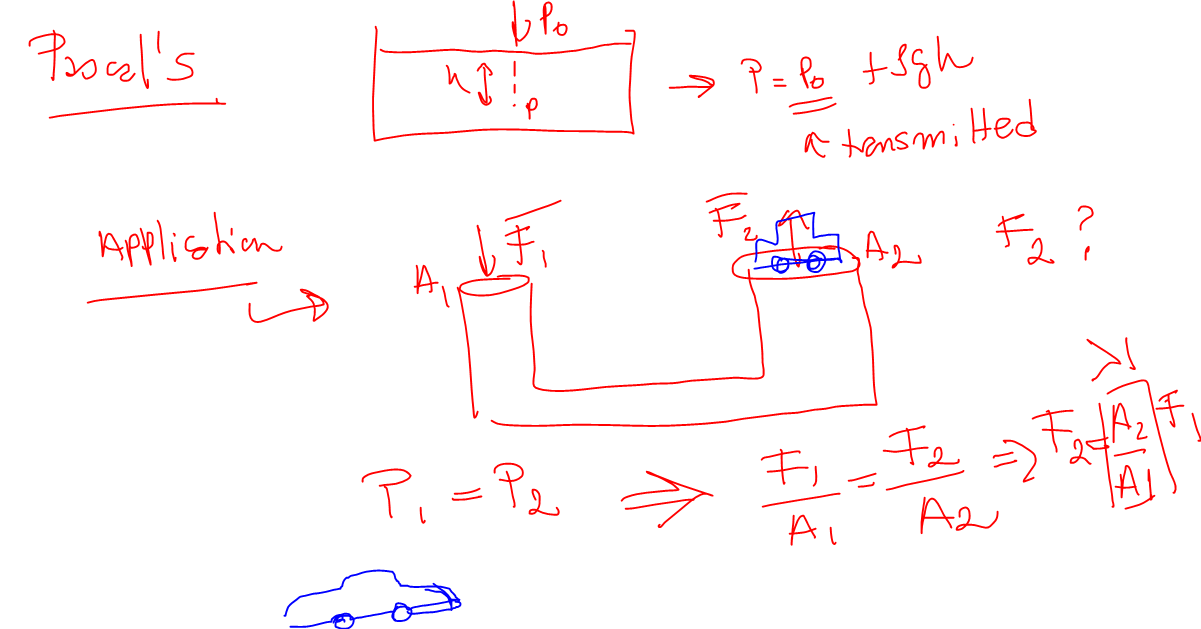 Pascal's
P₀
h
P
→ P = P₀ + ρgh
transmitted
Application
F₁
A₁
F₂
A₂
F₂ ?
P₁ = P₂ ⇒ F₁/A₁ = F₂/A₂ ⇒ F₂ = (A₂/A₁) F₁
>1